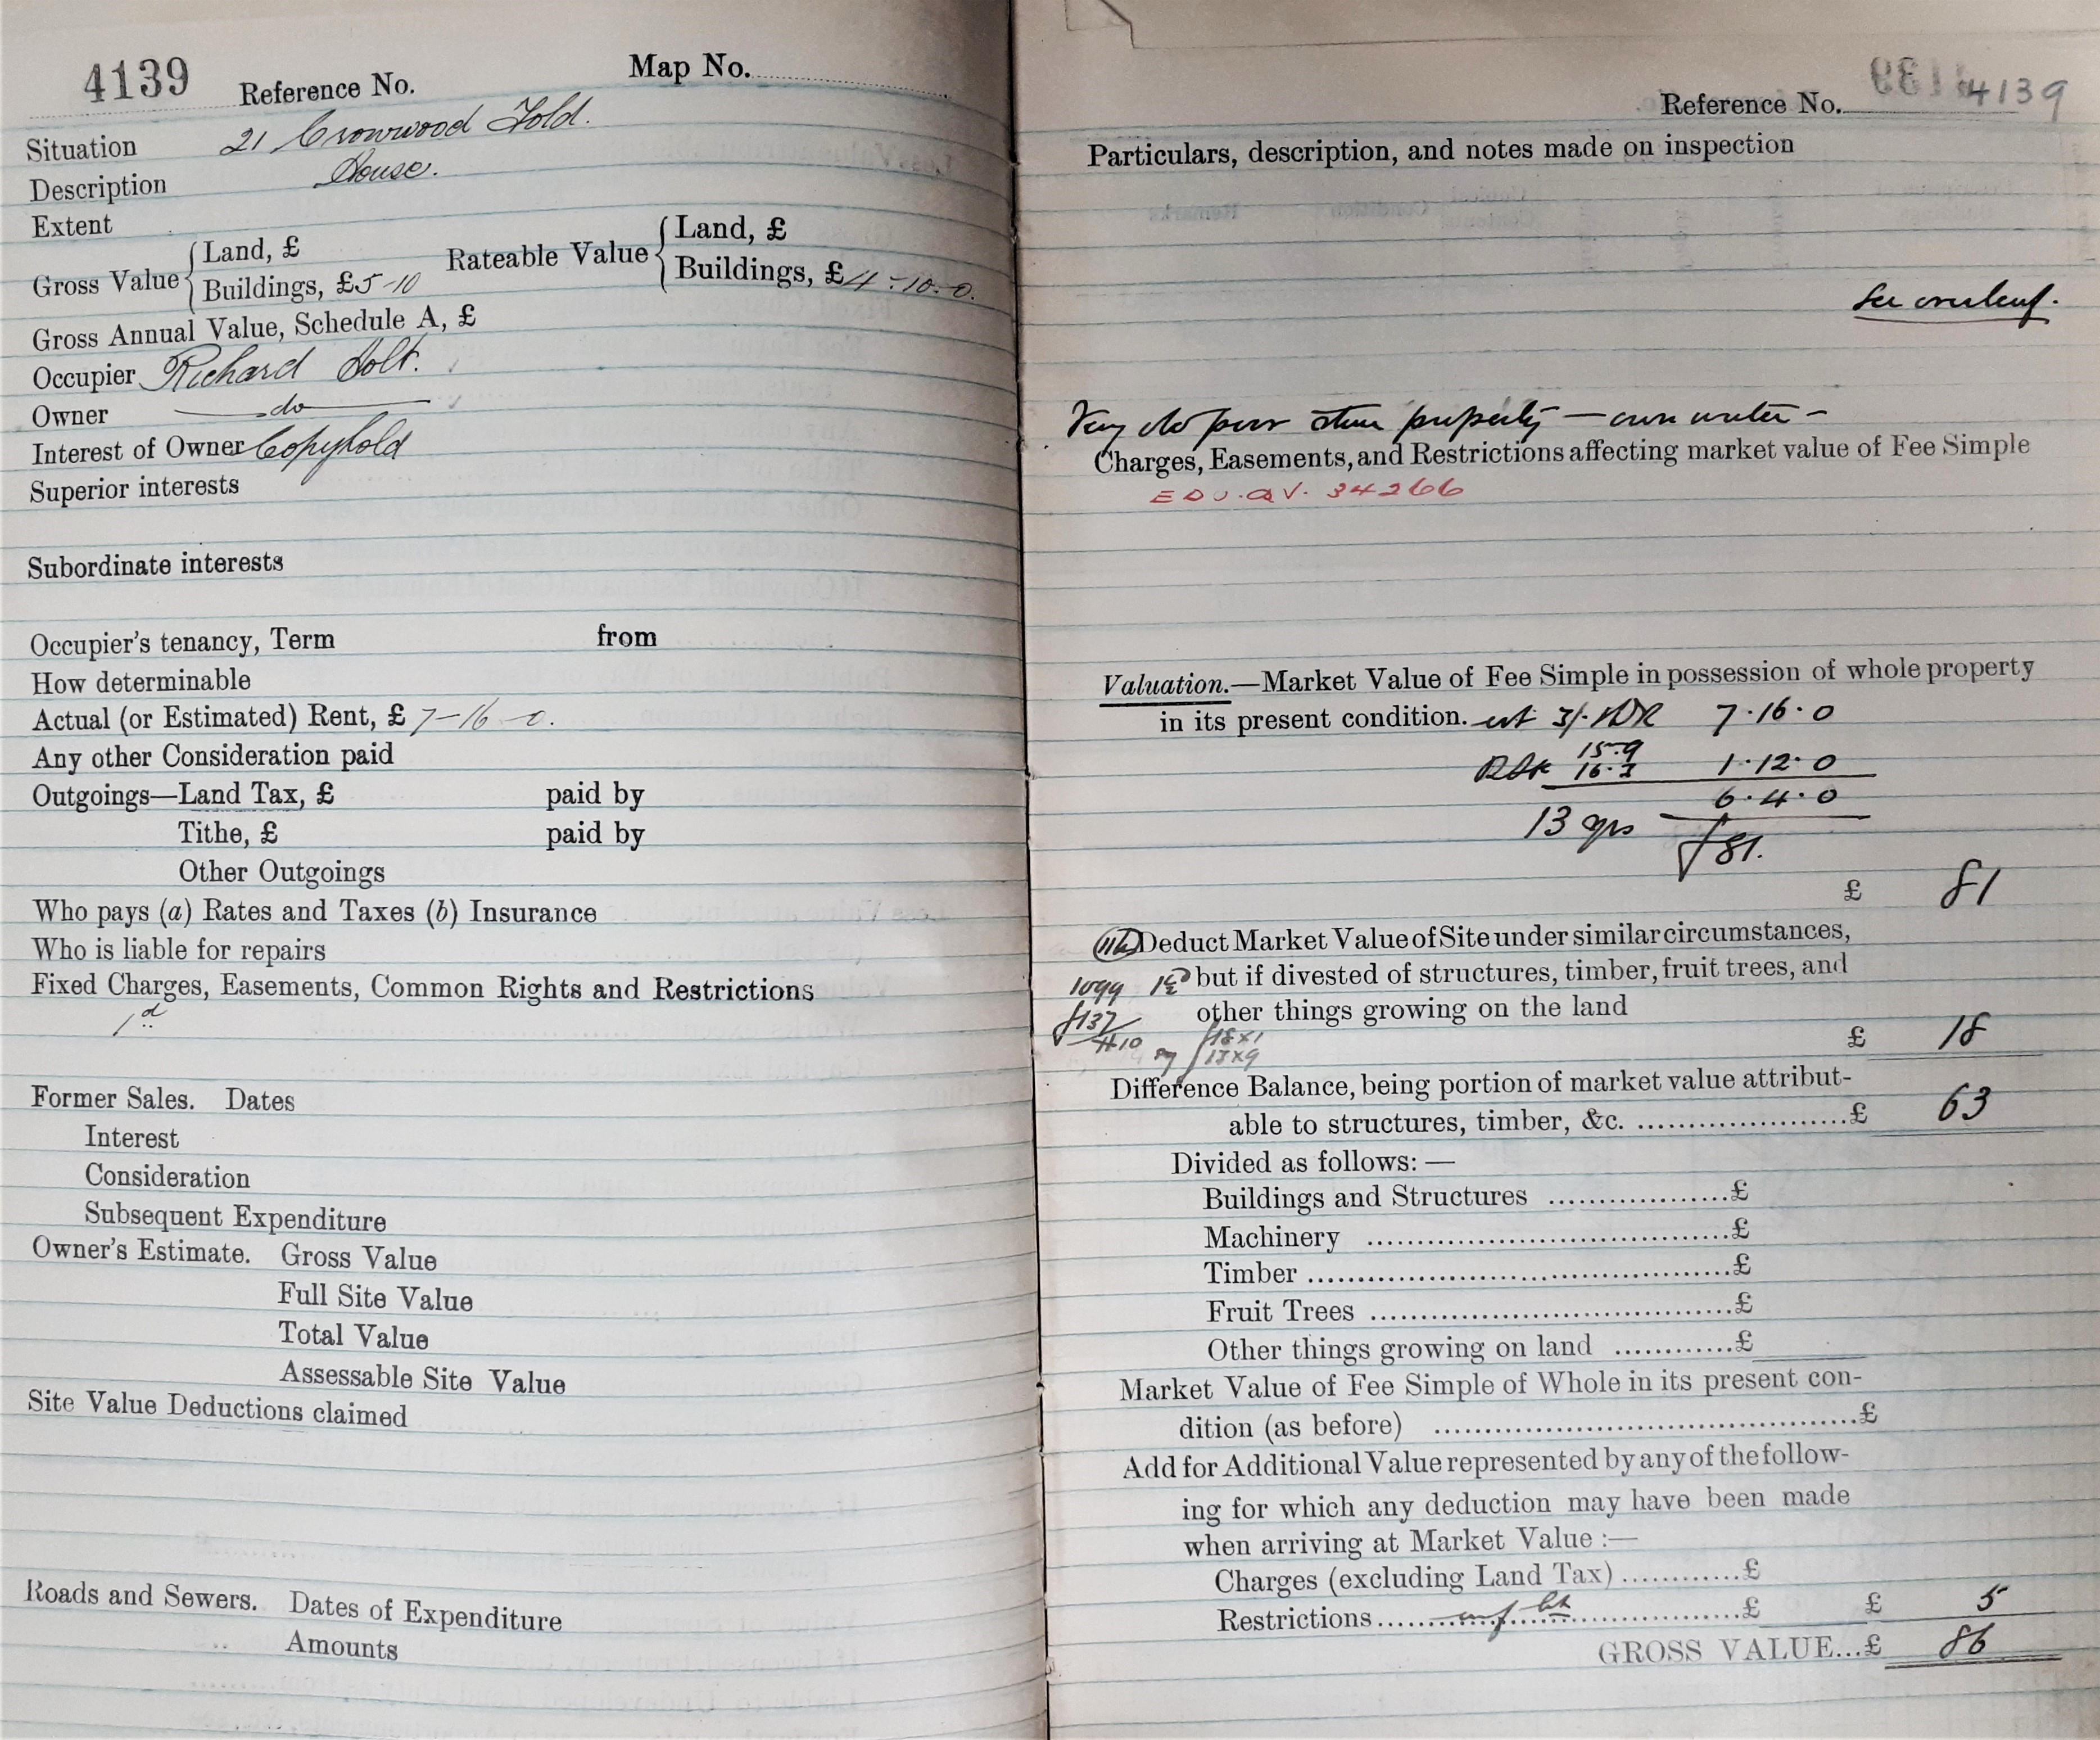 4139 Reference No. Map No.
Situation 21 Crowwood Fold.
Description House.
Extent
Gross Value { Land, £
Buildings, £5-10
Rateable Value { Land, £
Buildings, £4-10-0.
Gross Annual Value, Schedule A, £
Occupier Richard Holt.
Owner do
Interest of Owner Copyhold
Superior interests
Subordinate interests
Occupier's tenancy, Term from
How determinable
Actual (or Estimated) Rent, £ 7-16-0.
Any other Consideration paid
Outgoings—Land Tax, £ paid by
Tithe, £ paid by
Other Outgoings
Who pays (a) Rates and Taxes (b) Insurance
Who is liable for repairs
Fixed Charges, Easements, Common Rights and Restrictions
1d
Former Sales. Dates
Interest
Consideration
Subsequent Expenditure
Owner's Estimate. Gross Value
Full Site Value
Total Value
Assessable Site Value
Site Value Deductions claimed
Roads and Sewers. Dates of Expenditure
Amounts
Reference No. 4139
Particulars, description, and notes made on inspection
See overleaf.
Very old poor stone property — own water —
Charges, Easements, and Restrictions affecting market value of Fee Simple
EDU.QV. 34266
Valuation.—Market Value of Fee Simple in possession of whole property
in its present condition. 3/- 7.16.0
15.9
16.3 1.12.0
6.4.0
13 yrs £81.
£ 81
Deduct Market Value of Site under similar circumstances,
1099 but if divested of structures, timber, fruit trees, and
£137 other things growing on the land
18x1
13x9
£ 18
Difference Balance, being portion of market value attribut-
able to structures, timber, &c. ......................£ 63
Divided as follows: —
Buildings and Structures ...................£
Machinery ......................................£
Timber ............................................£
Fruit Trees ......................................£
Other things growing on land ............£
Market Value of Fee Simple of Whole in its present con-
dition (as before) ............................................£
Add for Additional Value represented by any of the follow-
ing for which any deduction may have been made
when arriving at Market Value :—
Charges (excluding Land Tax) ............£
Restrictions ....................................£ £ 5
GROSS VALUE...£ 86